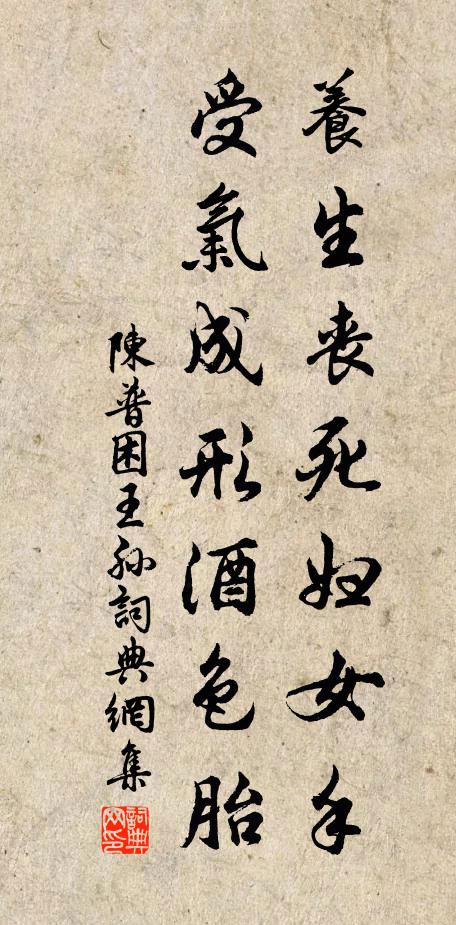 養生喪死妇女手
受氣成形酒色胎
陳普困王孙詞典網集
詞典网印